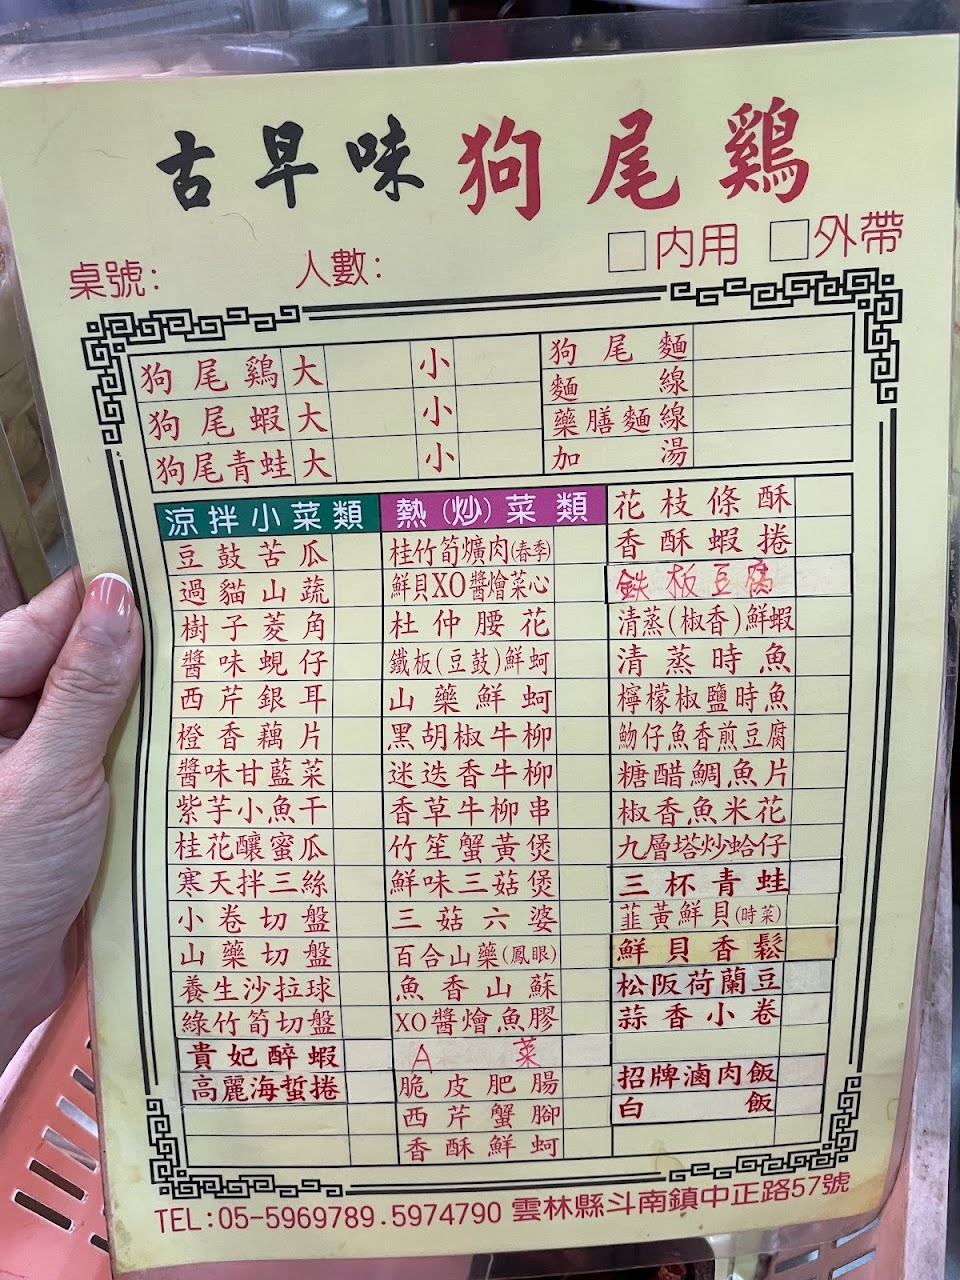 古早味狗尾鷄
桌號: 人數: □內用 □外帶
狗尾鷄 大 小
狗尾蝦 大 小
狗尾青蛙 大 小
狗尾麵
麵線
藥膳麵線
加湯
涼拌小菜類
豆鼓苦瓜
過貓山蔬
樹子菱角
醬味蜆仔
西芹銀耳
橙香藕片
醬味甘藍菜
紫芋小魚干
桂花釀蜜瓜
寒天拌三絲
小卷切盤
山藥切盤
養生沙拉球
綠竹筍切盤
貴妃醉蝦
高麗海蜇捲
熱(炒)菜類
桂竹筍爌肉(春季)
鮮貝XO醬燴菜心
杜仲腰花
鐵板(豆鼓)鮮蚵
山藥鮮蚵
黑胡椒牛柳
迷迭香牛柳
香草牛柳串
竹笙蟹黃煲
鮮味三菇煲
三菇六婆
百合山藥(鳳眼)
魚香山蘇
XO醬燴魚膠
A菜
脆皮肥腸
西芹蟹腳
香酥鮮蚵
花枝條酥
香酥蝦捲
鉄板豆腐
清蒸(椒香)鮮蝦
清蒸時魚
檸檬椒鹽時魚
魩仔魚香煎豆腐
糖醋鯛魚片
椒香魚米花
九層塔炒蛤仔
三杯青蛙
韮黃鮮貝(時菜)
鮮貝香鬆
松阪荷蘭豆
蒜香小卷
招牌滷肉飯
白飯
TEL:05-5969789.5974790 雲林縣斗南鎮中正路57號